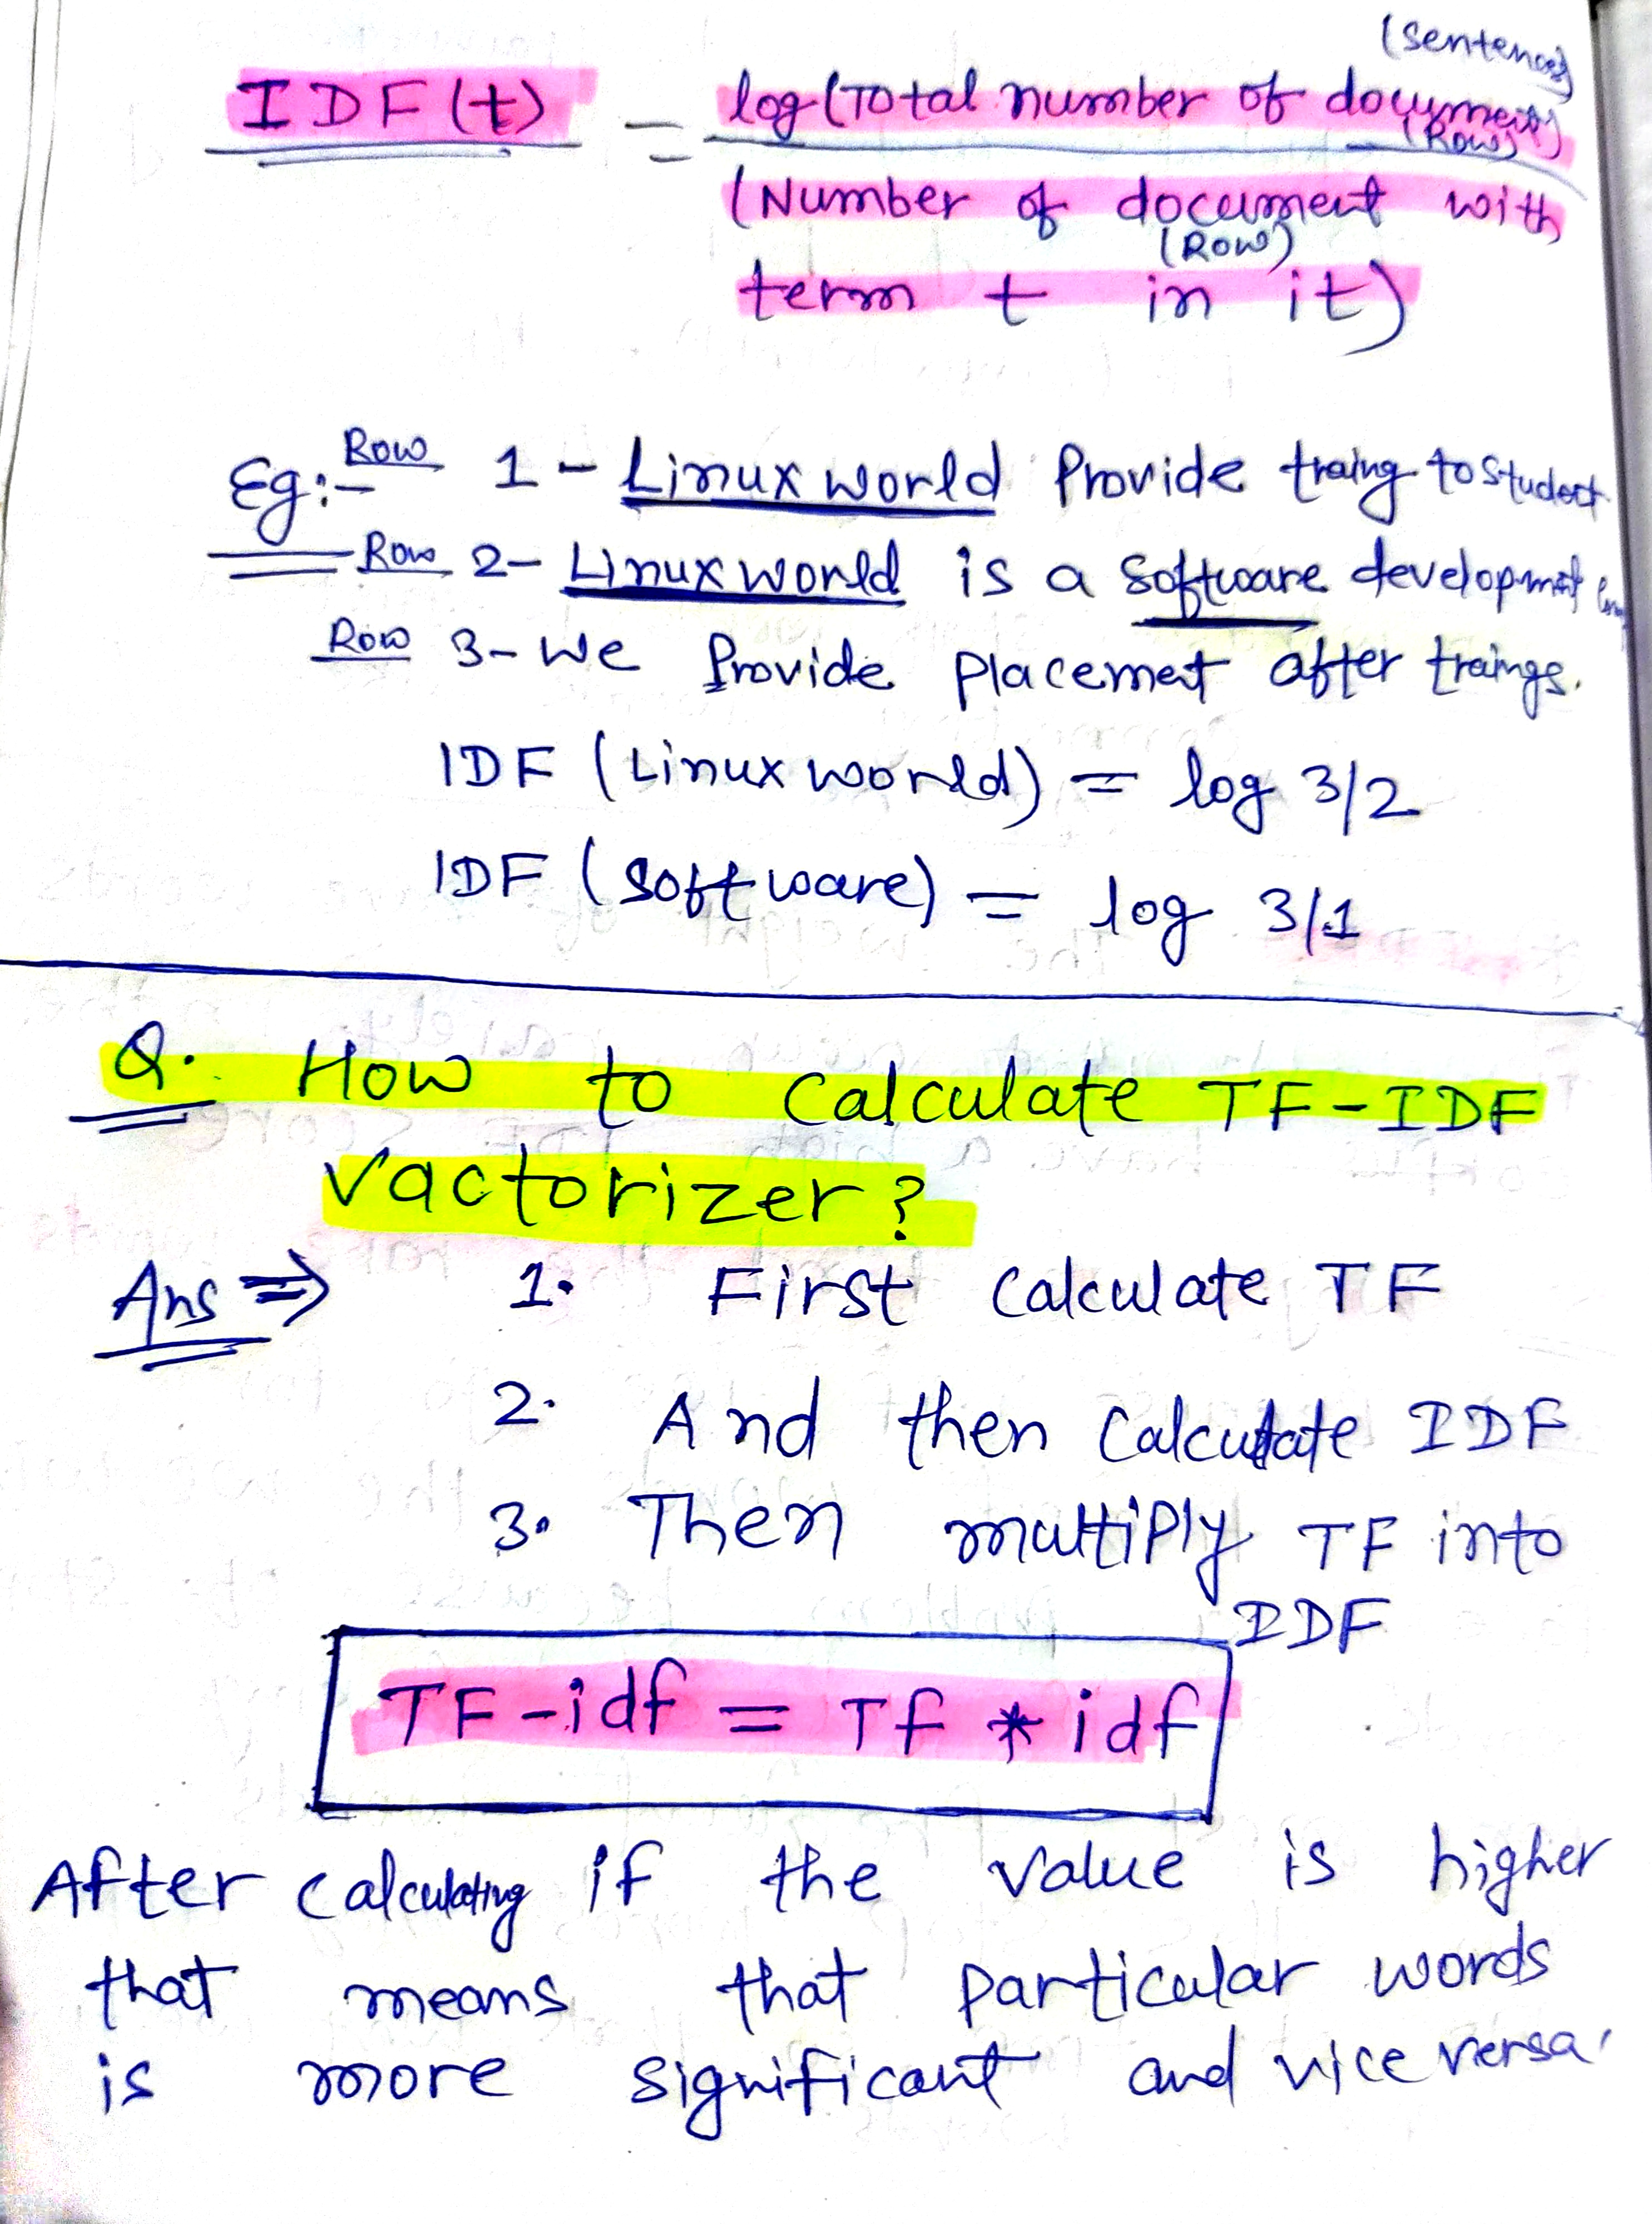 (Sentences)
IDF(t) = log(Total number of document)
(Rows)
(Number of document with
(Row)
term t in it)
Eg:- Row 1 - Linux world Provide traing to student
Row 2- Linux world is a software developmet
Row 3- We Provide Placemet after traings.
IDF (Linux world) = log 3/2
IDF (software) = log 3/1
Q. How to calculate TF-IDF
Vactorizer?
Ans ⇒ 1. First calculate TF
2. And then calculate IDF
3. Then multiply TF into
IDF
TF-idf = Tf * idf
After calculating if the value is higher
that means that particular words
is more significant and vice versa.